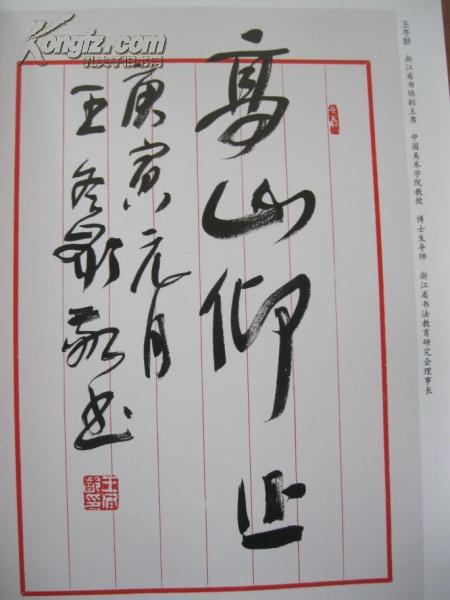 王冬龄 浙江省书协副主席 中国美术学院教授 博士生导师 浙江省书法教育研究会理事长
高山仰止
庚寅元月
王冬龄敬书
孔夫子旧书网